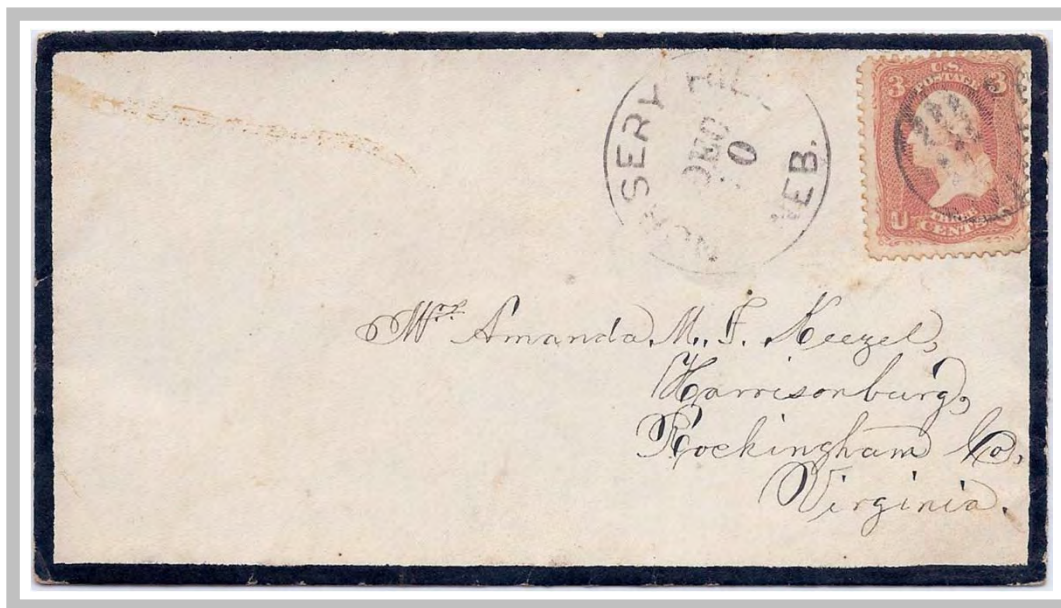 NURSERY HILL
NEB.
DEC
10
3 U.S. 3
POSTAGE
U THREE S
CENTS
Mrs Amanda M. F. Keezel,
Harrisonburg,
Rockingham Co,
Virginia.